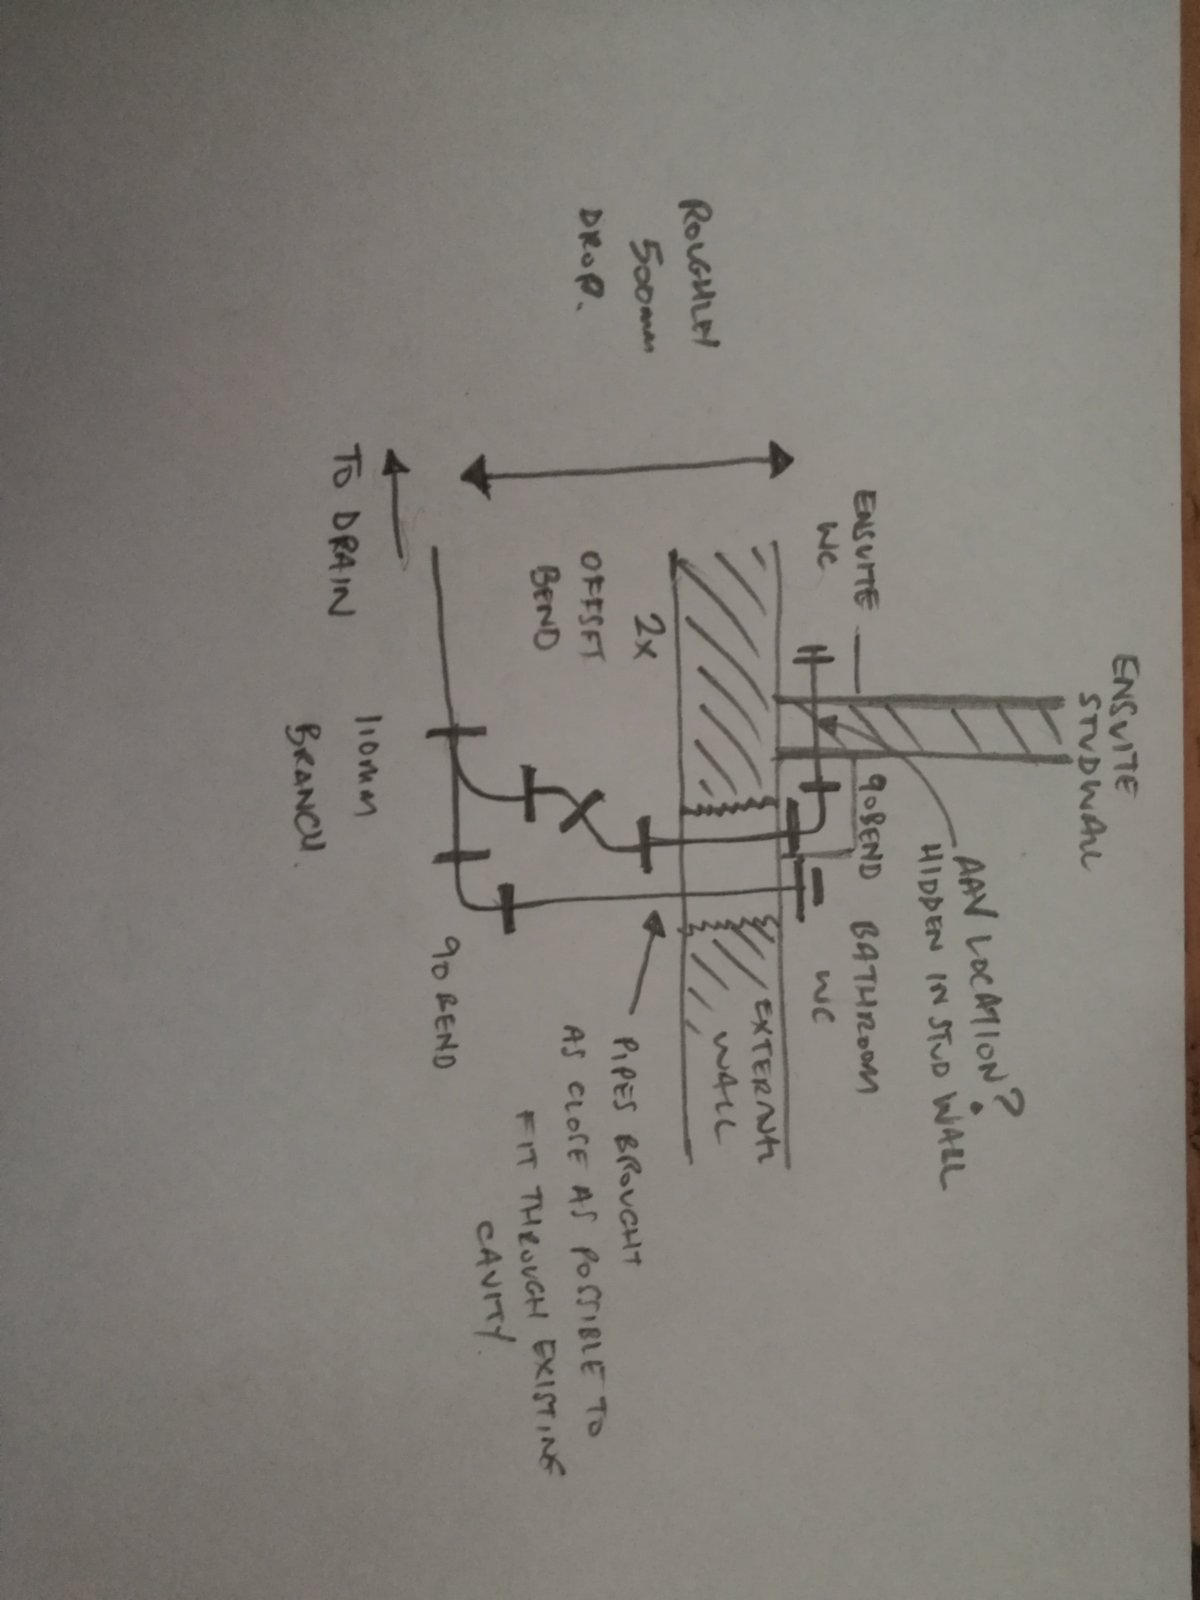 ENSUITE
STUDWALL
AAV LOCATION?
HIDDEN IN STUD WALL
ENSUITE
WC
90BEND
BATHROOM
WC
EXTERNAL
WALL
ROUGHLY
500mm
DROP.
2X
OFFSET
BEND
PIPES BROUGHT
AS CLOSE AS POSSIBLE TO
FIT THROUGH EXISTING
CAVITY.
90 BEND
TO DRAIN
110MM
BRANCH.